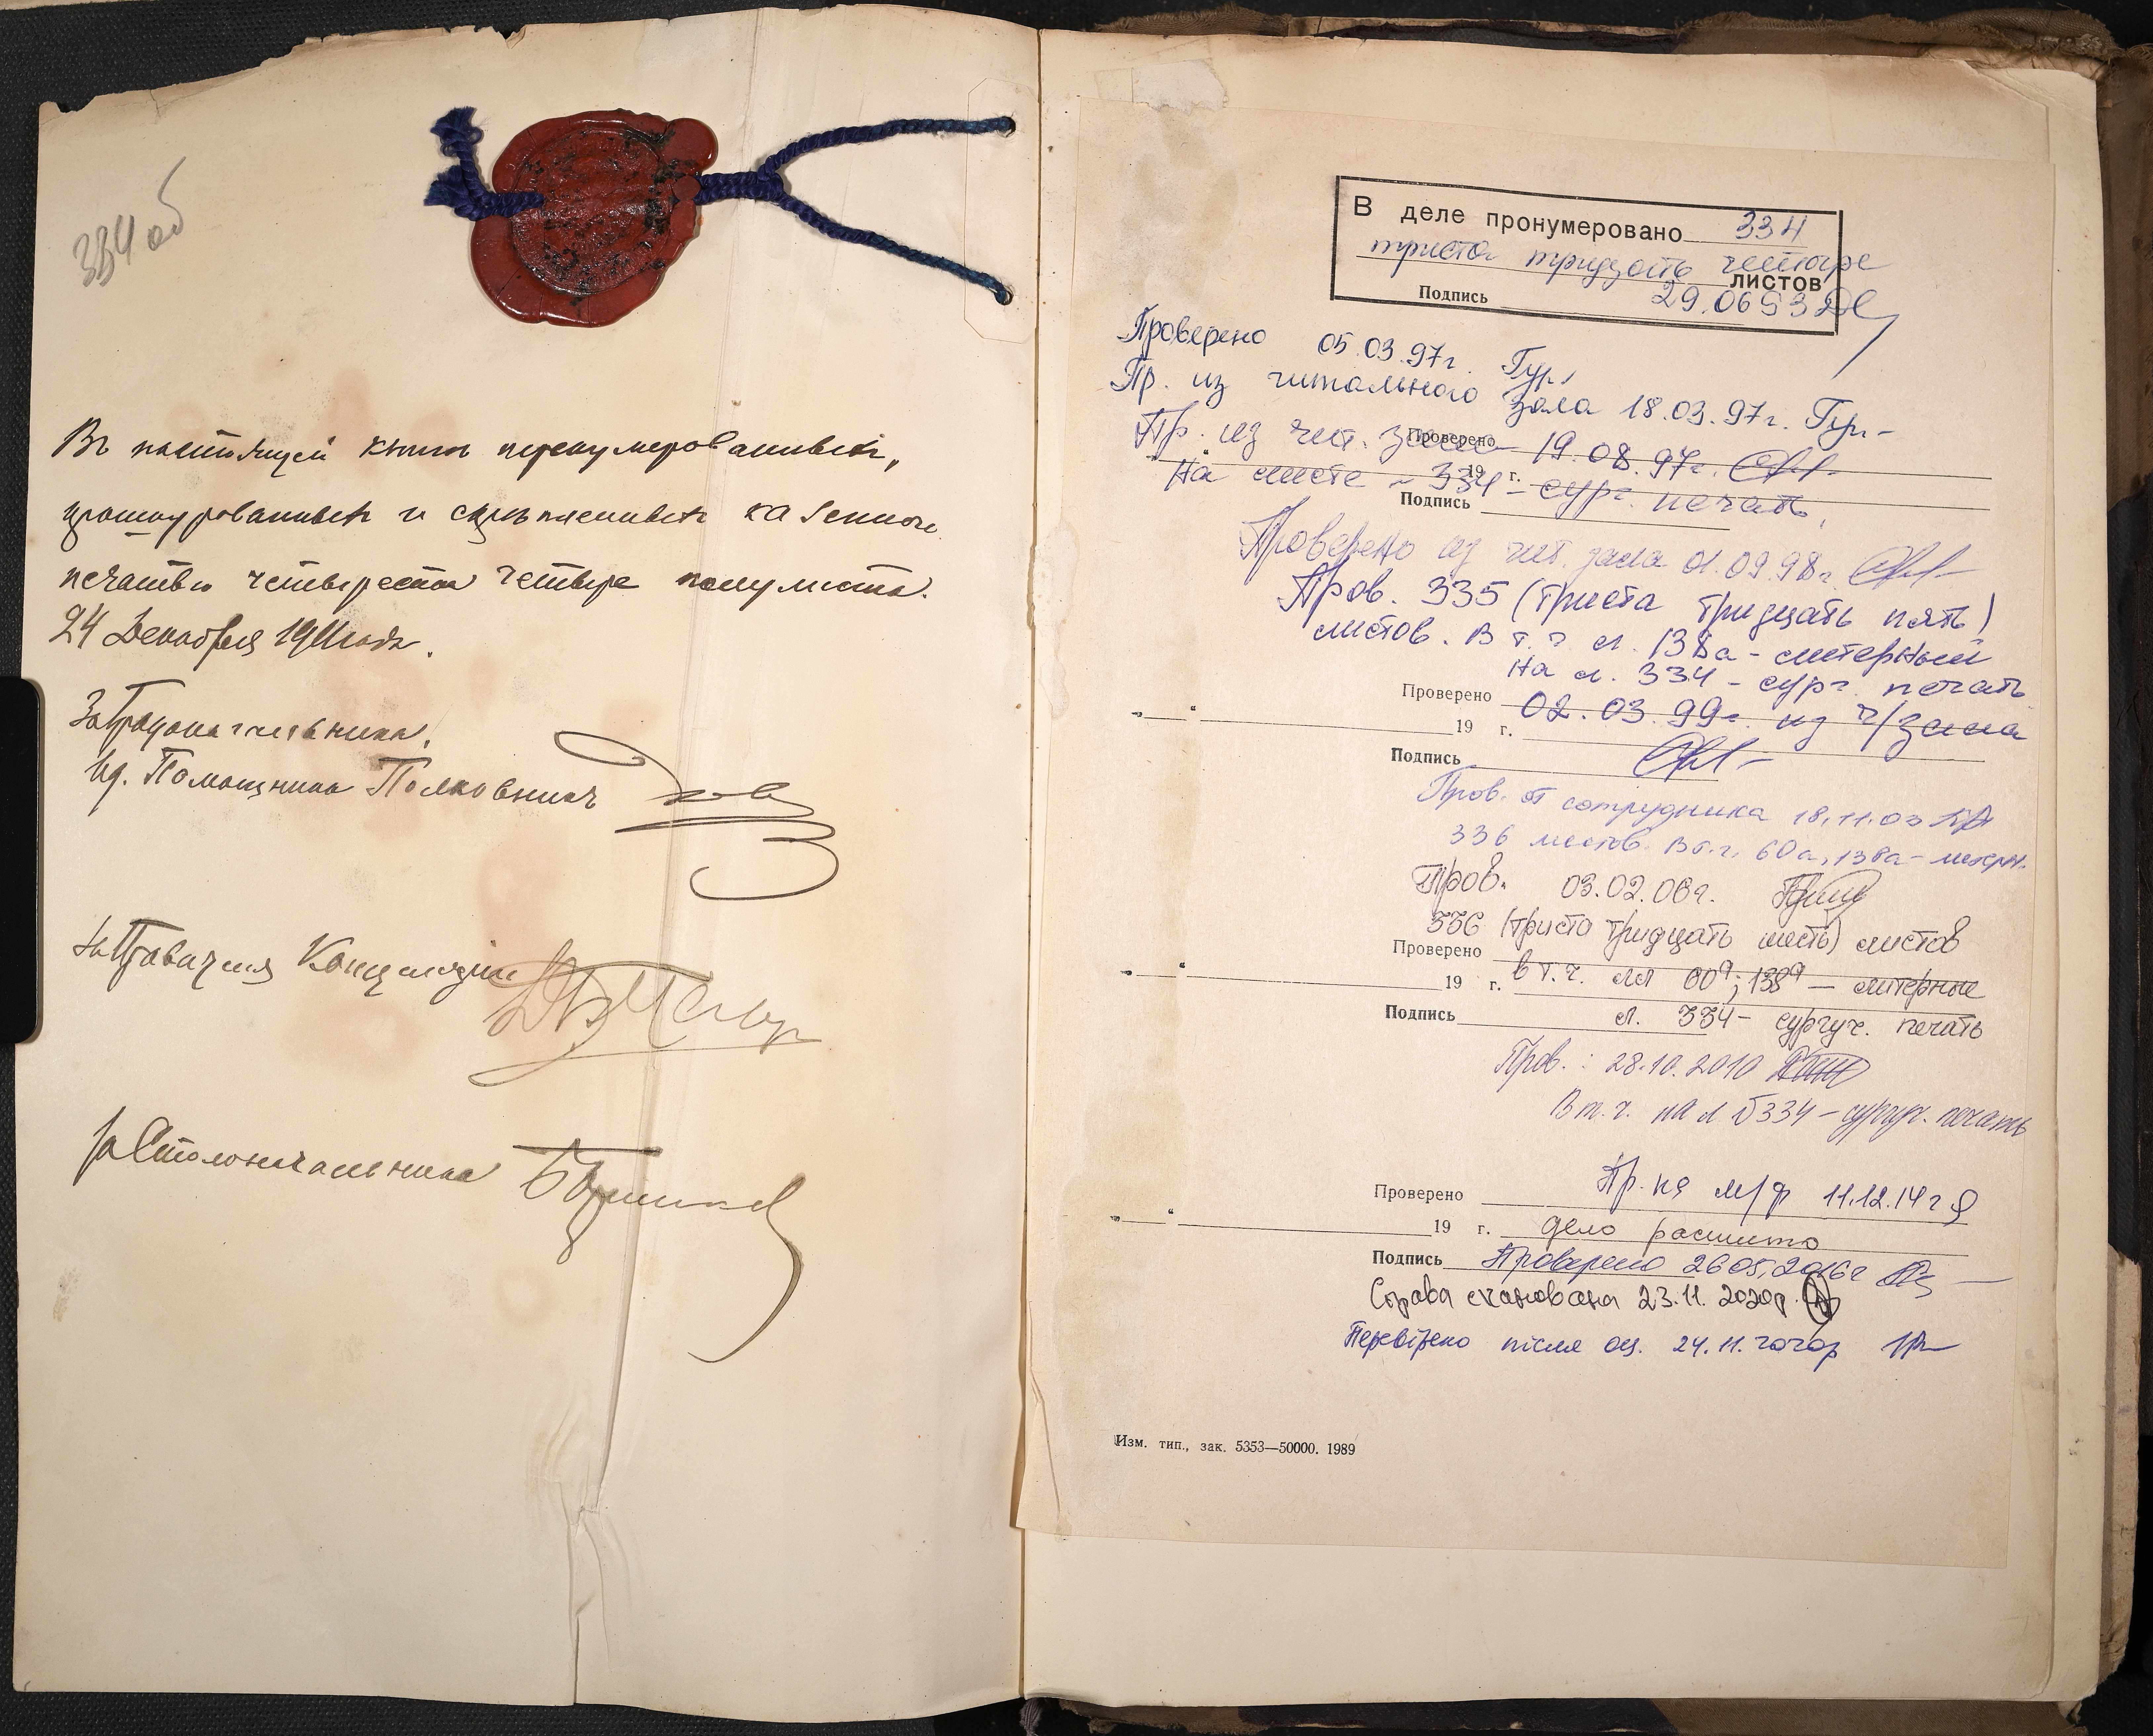 334 об
Въ настоящей книге перенумерованныхъ,
прошнурованныхъ и скрѣпленныхъ казенною
печатью четыреста четыре полулиста.
24 Декабря 1911 года.
За Градоначальника,
Ид. Помощника Полковникъ
За Правителя Канцеляріи
За Столоначальника
В деле пронумеровано 334
триста тридцать четыре
листов
Подпись 29.06 93
Проверено 05.03.97г. Гур
Пр. из читального зала 18.03.97г. Гур-
Пр. из чит. зала 19.08.97г.
Проверено
19 г.
На листе - 334 - сург. печать.
Подпись
Проверено из чит. зала 01.09.98г.
Пров. 335 (триста тридцать пять)
листов. В т.ч л. 138а - литерный
На л. 334 - сург. печать
Проверено 02.03.99г. из ч/зала
" " 19 г.
Подпись
Пров. от сотрудника 18.11.03
336 листов. В т.ч. 60а, 138а - литерн.
Пров. 03.02.06г.
336 (триста тридцать шесть) листов
Проверено
" " 19 г. в т.ч. лл 60а; 138а — литерные
Подпись л. 334 - сургуч. печать
Пров.: 28.10.2010
В т.ч. на л 334 - сургуч. печать
Проверено Пр. на м/ф 11.12.14г
" " 19 г. дело расшито
Подпись Проверено 26 05.2016г
Справа сканована 23.11.2020р.
Перевірено після оц. 24.11.2020р
Изм. тип., зак. 5353—50000. 1989